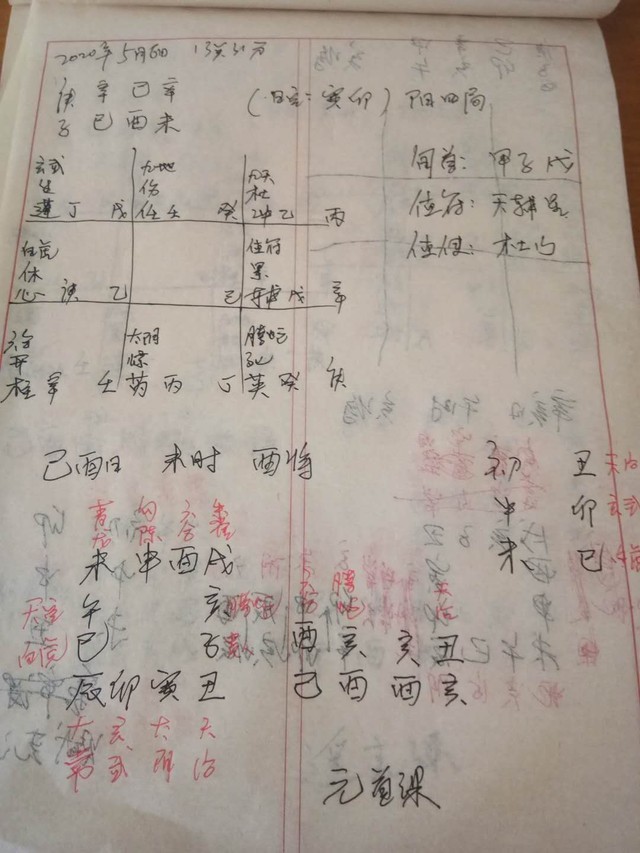 2020年5月6日 13点31分
庚 辛 己 辛
子 巳 酉 未
(日空：寅卯) 阳四局
旬首：甲子戊
值符：天辅星
值使：杜门
玄武 九地 九天
生 伤 杜
蓬 丁 戊 任 壬 癸 冲 乙 丙
白虎 值符
休 景
心 庚 乙 己 辅 戊 辛
六合 太阴 螣蛇
开 惊 死
柱 辛 壬 芮 丙 丁 英 癸 庚
己酉日 未时 酉将
初 丑
中 卯
末 巳
青龙 勾陈 六合 朱雀
未 申 酉 戌
天空 午 亥 螣蛇
白虎 巳 子 贵
辰 卯 寅 丑
太常 玄武 太阴 天后
六合 螣蛇
酉 亥 亥 丑
己 酉 酉 亥
元首课